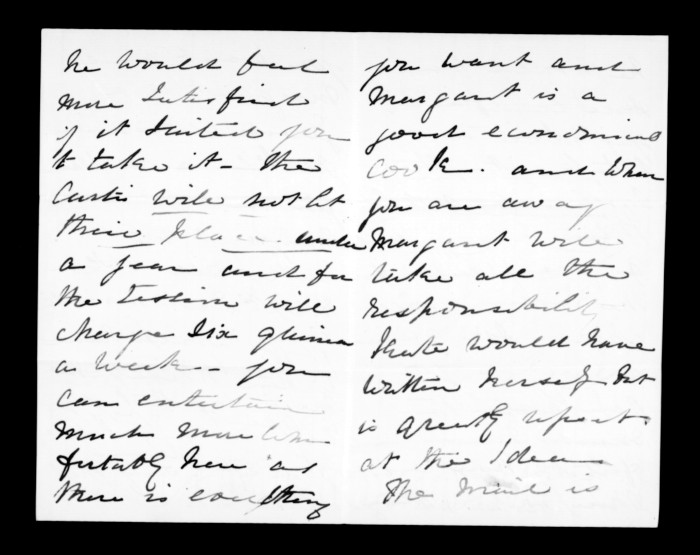 he would feel
more Satisfied
if it Suited you
to take it - the
Curtis will not let
their place under
a year and for
the Session will
charge Six guineas
a week - you
can entertain
much more com
fortably here as
there is everything
you want and
Margaret is a
good economical
cook. and when
you are away
Margaret will
take all the
responsibility
Kate would have
written herself but
is greatly upset
at the Idea
The mail is